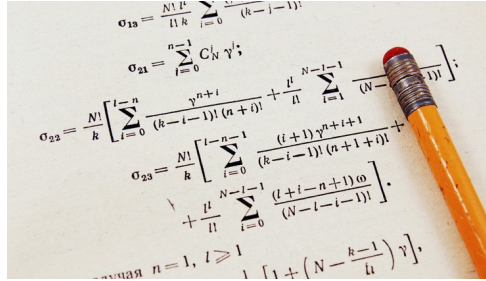 σ₁₃ = N! lˡ / l! k ∑ i=0 (k−i−1)!
σ₂₁ = ∑ i=0 n−1 Cᵢ_N γⁱ;
σ₂₂ = N!/k [ ∑ i=0 l−n γⁿ⁺ⁱ / (k−i−1)! (n+i)! + lˡ/l! ∑ i=1 N−l−1 / (N− )! ];
σ₂₃ = N!/k [ ∑ i=0 l−n−1 (i+1) γⁿ⁺ⁱ⁺¹ / (k−i−1)! (n+1+i)! +
+ lˡ/l! ∑ i=0 N−l−1 (l+i−n+1) ω / (N−l−i−1)! ].
n=1, l ⩾ 1
[ 1 + ( N − k−1 / ) γ ],